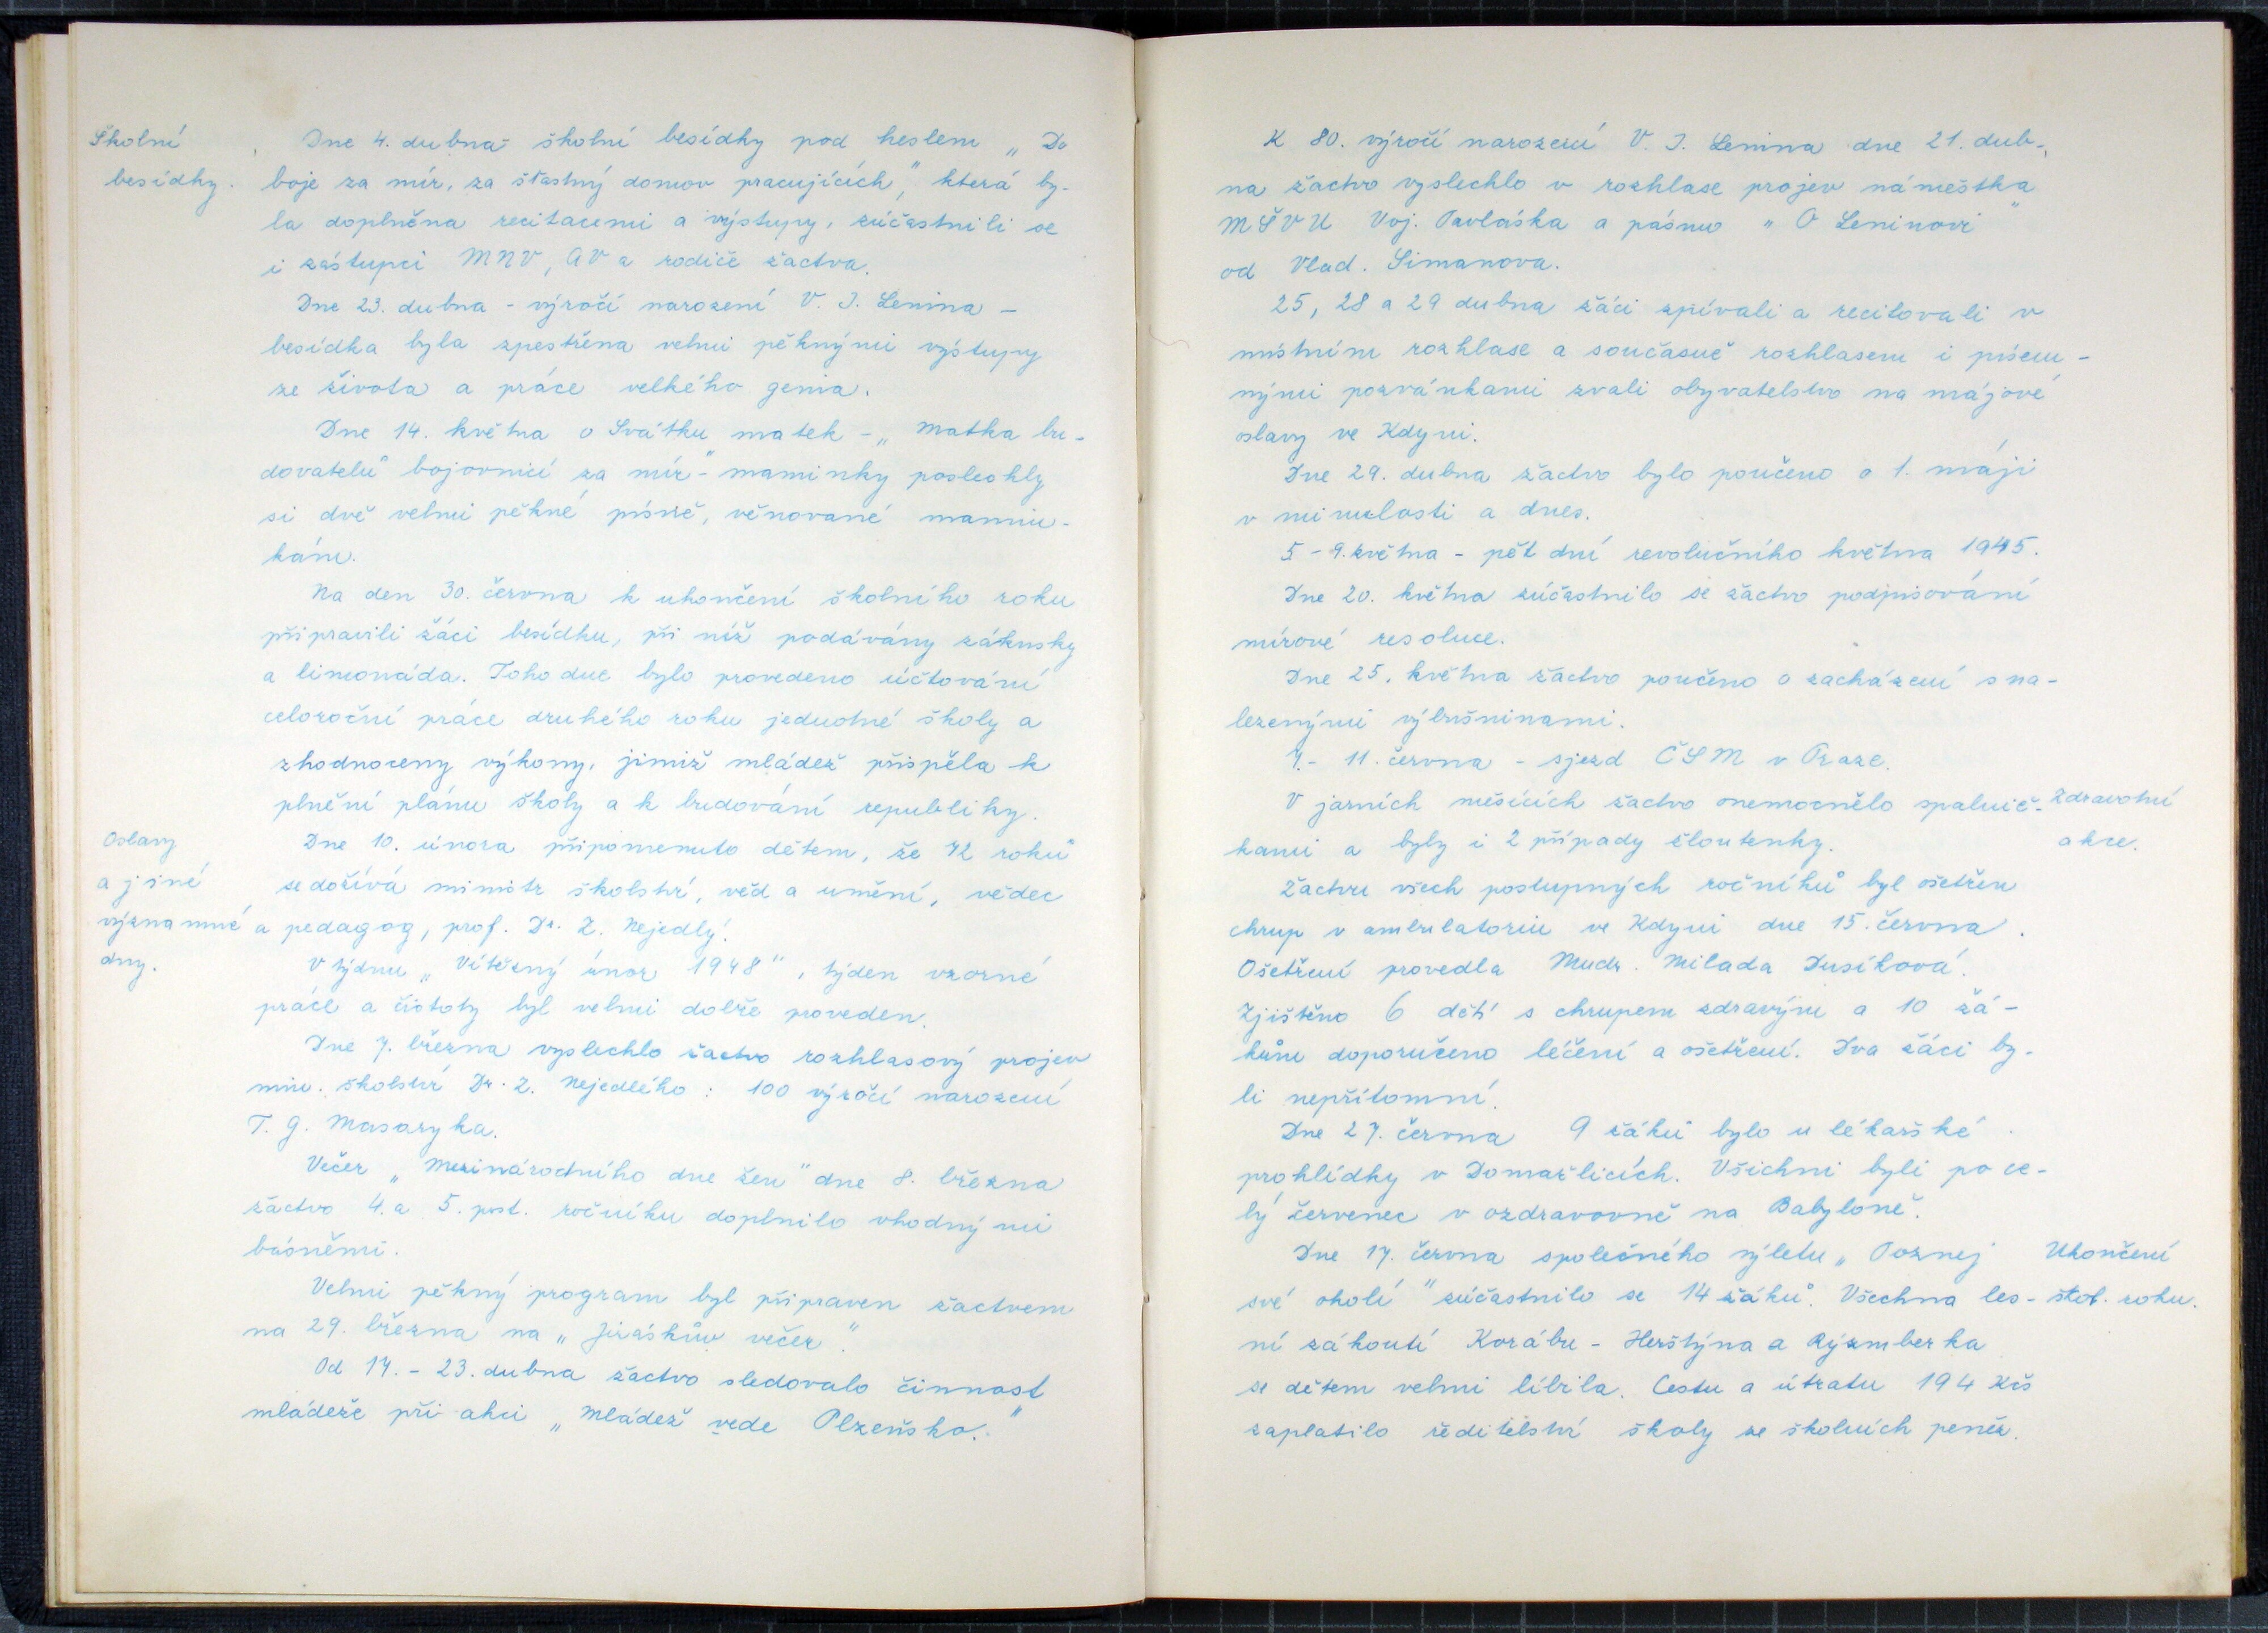 Školní
besídky.
Dne 4. dubna - školní besídky pod heslem „Do
boje za mír, za šťastný domov pracujících", která by-
la doplněna recitacemi a výstupy, zúčastnili se
i zástupci MNV, AV a rodiče žactva.
Dne 23. dubna - výročí narození V. I. Lenina -
besídka byla zpestřena velmi pěknými výstupy
ze života a práce velkého genia.
Dne 14. května o Svátku matek - „Matka bu-
dovatelů bojovnicí za mír" - maminky poslechly
si dvě velmi pěkné písně, věnované mamin-
kám.
Na den 30. června k ukončení školního roku
připravili žáci besídku, při níž podávány zákusky
a limonáda. Toho dne bylo provedeno účtování
celoroční práce druhého roku jednotné školy a
zhodnoceny výkony, jimiž mládež přispěla k
plnění plánu školy a k budování republiky.
Oslavy
a jiné
významné
dny.
Dne 10. února připomenuto dětem, že 72 roků
se dožívá ministr školství, věd a umění, vědec
a pedagog, prof. Dr. Z. Nejedlý.
V týdnu „Vítězný únor 1948", týden vzorné
práce a čistoty byl velmi dobře proveden.
Dne 7. března vyslechlo žactvo rozhlasový projev
min. školství Dr. Z. Nejedlého: 100 výročí narození
T. G. Masaryka.
Večer „Mezinárodního dne žen" dne 8. března
žactvo 4. a 5. post. ročníku doplnilo vhodnými
básněmi.
Velmi pěkný program byl připraven žactvem
na 29. března na „Jiráskův večer".
Od 17. - 23. dubna žactvo sledovalo činnost
mládeže při akci „Mládež vede Plzeňsko."
K 80. výročí narození V. I. Lenina dne 21. dub-
na žactvo vyslechlo v rozhlase projev náměstka
MŠVU Voj. Pavláska a pásmo „O Leninovi"
od Vlad. Simanova.
25, 28 a 29 dubna žáci zpívali a recitovali v
místním rozhlase a současně rozhlasem i písem-
nými pozvánkami zvali obyvatelstvo na májové
oslavy ve Kdyni.
Dne 29. dubna žactvo bylo poučeno o 1. máji
v minulosti a dnes.
5 - 9. května - pět dní revolučního května 1945.
Dne 20. května zúčastnilo se žactvo podpisování
mírové resoluce.
Dne 25. května žactvo poučeno o zacházení s na-
lezenými výbušninami.
7. - 11. června - sjezd ČSM v Praze.
V jarních měsících žactvo onemocnělo spalnič-
kami a byly i 2 případy žloutenky.
Zdravotní
akce.
Žactvu všech postupných ročníků byl ošetřen
chrup v ambulatoriu ve Kdyni dne 15. června.
Ošetření provedla Mudr. Milada Dusíková.
Zjištěno 6 dětí s chrupem zdravým a 10 žá-
kům doporučeno léčení a ošetření. Dva žáci by-
li nepřítomni.
Dne 27. června 9 žáků bylo u lékařské
prohlídky v Domažlicích. Všichni byli po ce-
lý červenec v ozdravovně na Babyloně.
Dne 17. června společného výletu „Poznej
své okolí" zúčastnilo se 14 žáků. Všechna les-
ní zákoutí Korábu - Herštýna a Rýzmberka
se dětem velmi líbila. Cestu a útratu 194 Kčs
zaplatilo ředitelství školy ze školních peněz.
Ukončení
škol. roku.